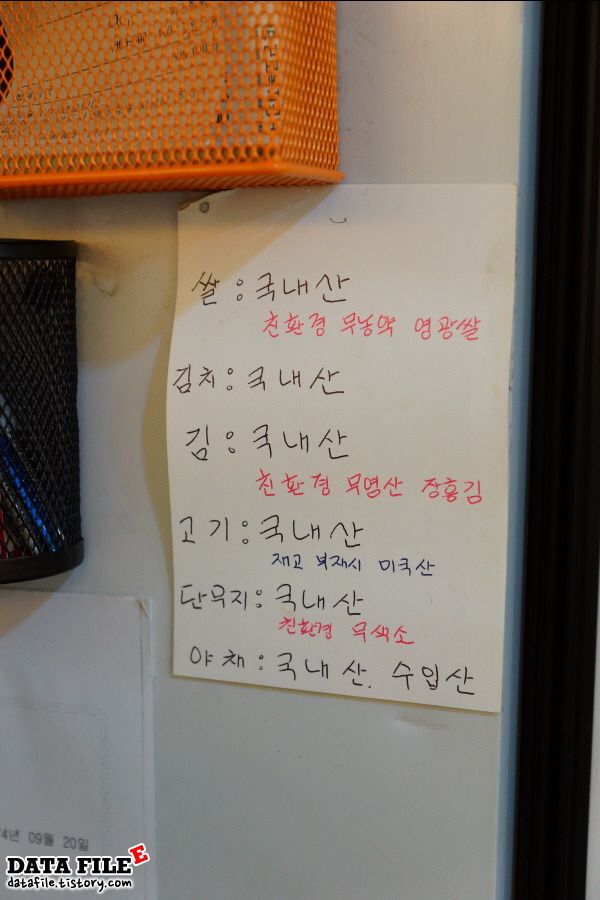 쌀 : 국내산
친환경 무농약 영광쌀
김치 : 국내산
김 : 국내산
친환경 무염산 장흥김
고기 : 국내산
재고 부재시 미국산
단무지 : 국내산
친환경 무색소
야채 : 국내산, 수입산
4년 09월 20일
DATA FILE E
datafile.tistory.com